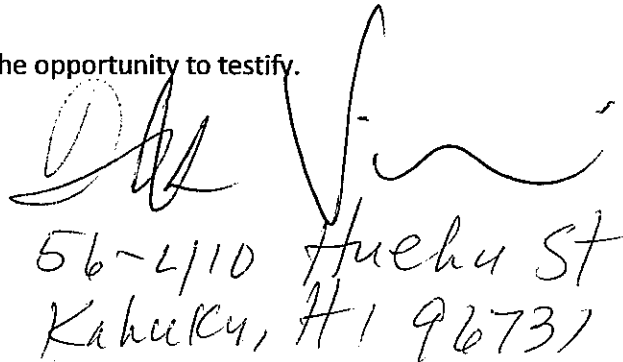 he opportunity to testify.
56-410 Huehu St
Kahuku, HI 96731